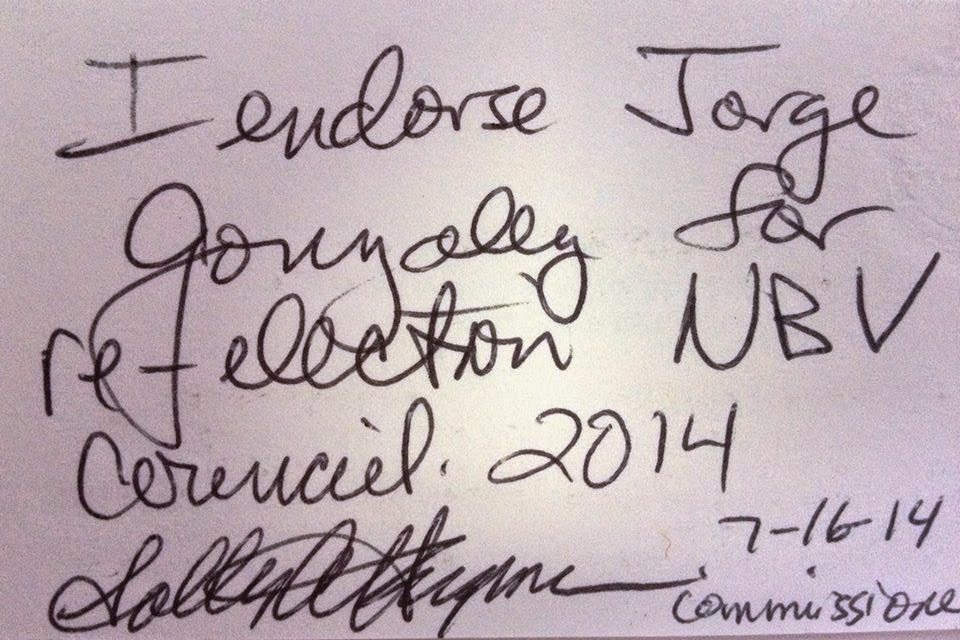 I endorse Jorge
Gonzalez for
re-election NBV
Council. 2014
Sally A Heyman
7-16-14
Commissione